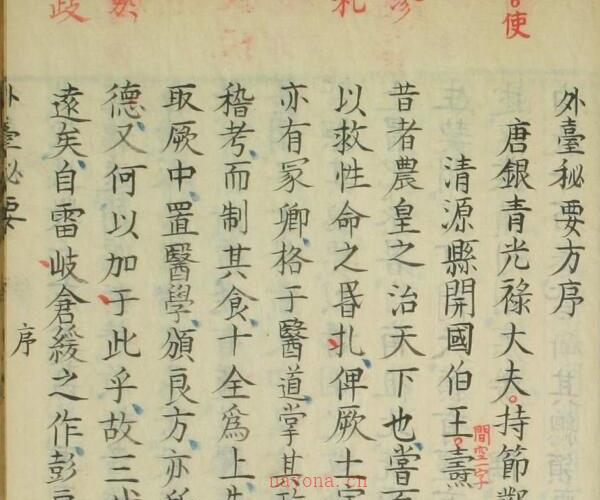 外臺秘要方序
唐銀青光祿大夫持節鄴
清源縣開國伯王燾
間空一字
昔者農皇之治天下也嘗百
以救性命之昬扎俾厥土宇
亦有冢卿格于醫道掌其政
稽考而制其食十全為上失
取厥中置醫學頒良方亦所
德又何以加于此乎故三代
遠矣自雷岐倉緩之作彭
外臺秘要
序
使
札
歧
nayona.cn